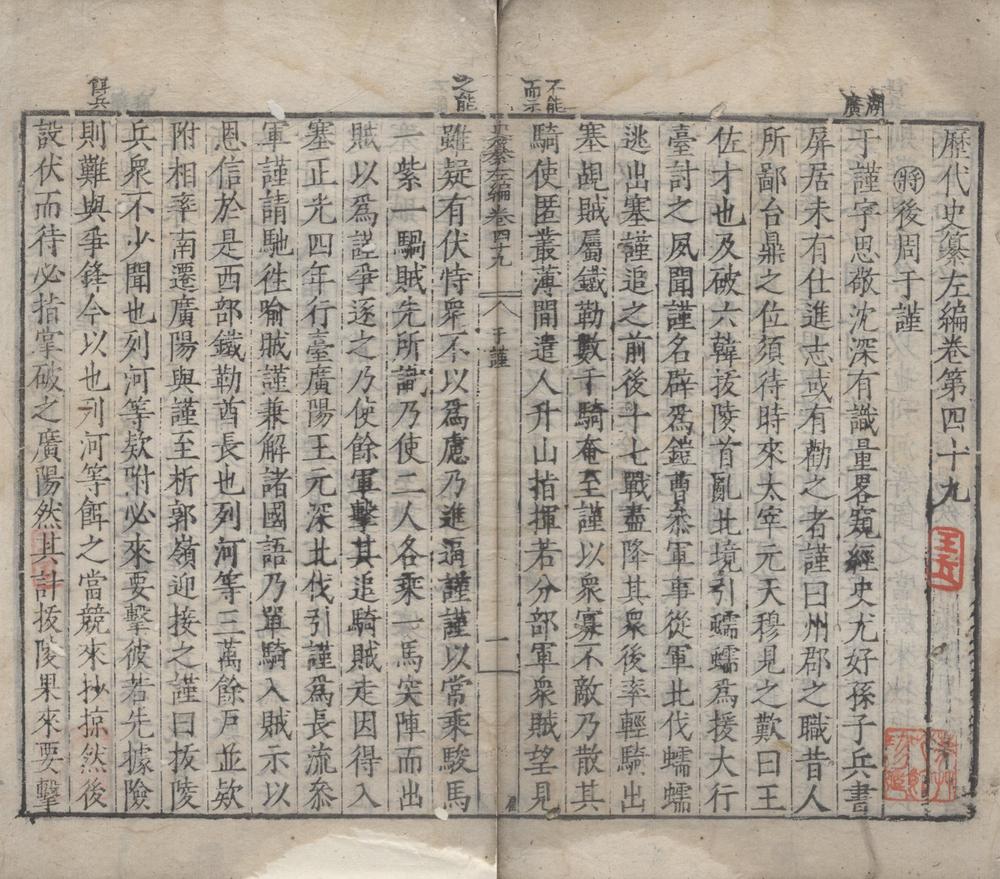 歷代史纂左編卷第四十九
將後周于謹
于謹字思敬沈深有識量畧窺經史尤好孫子兵書
屏居未有仕進志或有勸之者謹曰州郡之職昔人
所鄙台鼎之位須待時來太宰元天穆見之歎曰王
佐才也及破六韓拔陵首亂北境引蠕蠕爲援大行
臺討之夙聞謹名辟爲鎧曹叅軍事從軍北伐蠕蠕
逃出塞謹追之前後十七戰盡降其衆後率輕騎出
塞覘賊屬鐵勒數千騎奄至謹以衆寡不敵乃散其
騎使匿叢薄間遣人升山指揮若分部軍衆賊望見
雖疑有伏恃衆不以爲慮乃進逼謹謹以常乘駿馬
一紫一騧賊先所識乃使二人各乘一馬突陣而出
賊以爲謹爭逐之乃使餘軍擊其追騎賊走因得入
塞正光四年行臺廣陽王元深北伐引謹爲長流叅
軍謹請馳徃喻賊謹兼解諸國語乃單騎入賊示以
恩信於是西部鐵勒酋長也列河等三萬餘戶並欵
附相率南遷廣陽與謹至析郭嶺迎接之謹曰拔陵
兵衆不少聞也列河等欵附必來要擊彼若先據險
則難與爭鋒今以也列河等餌之當競來抄掠然後
設伏而待必指掌破之廣陽然其計拔陵果來要擊
湖廣
不能而示
之能
餌兵
史纂左編卷四十九
于謹
一